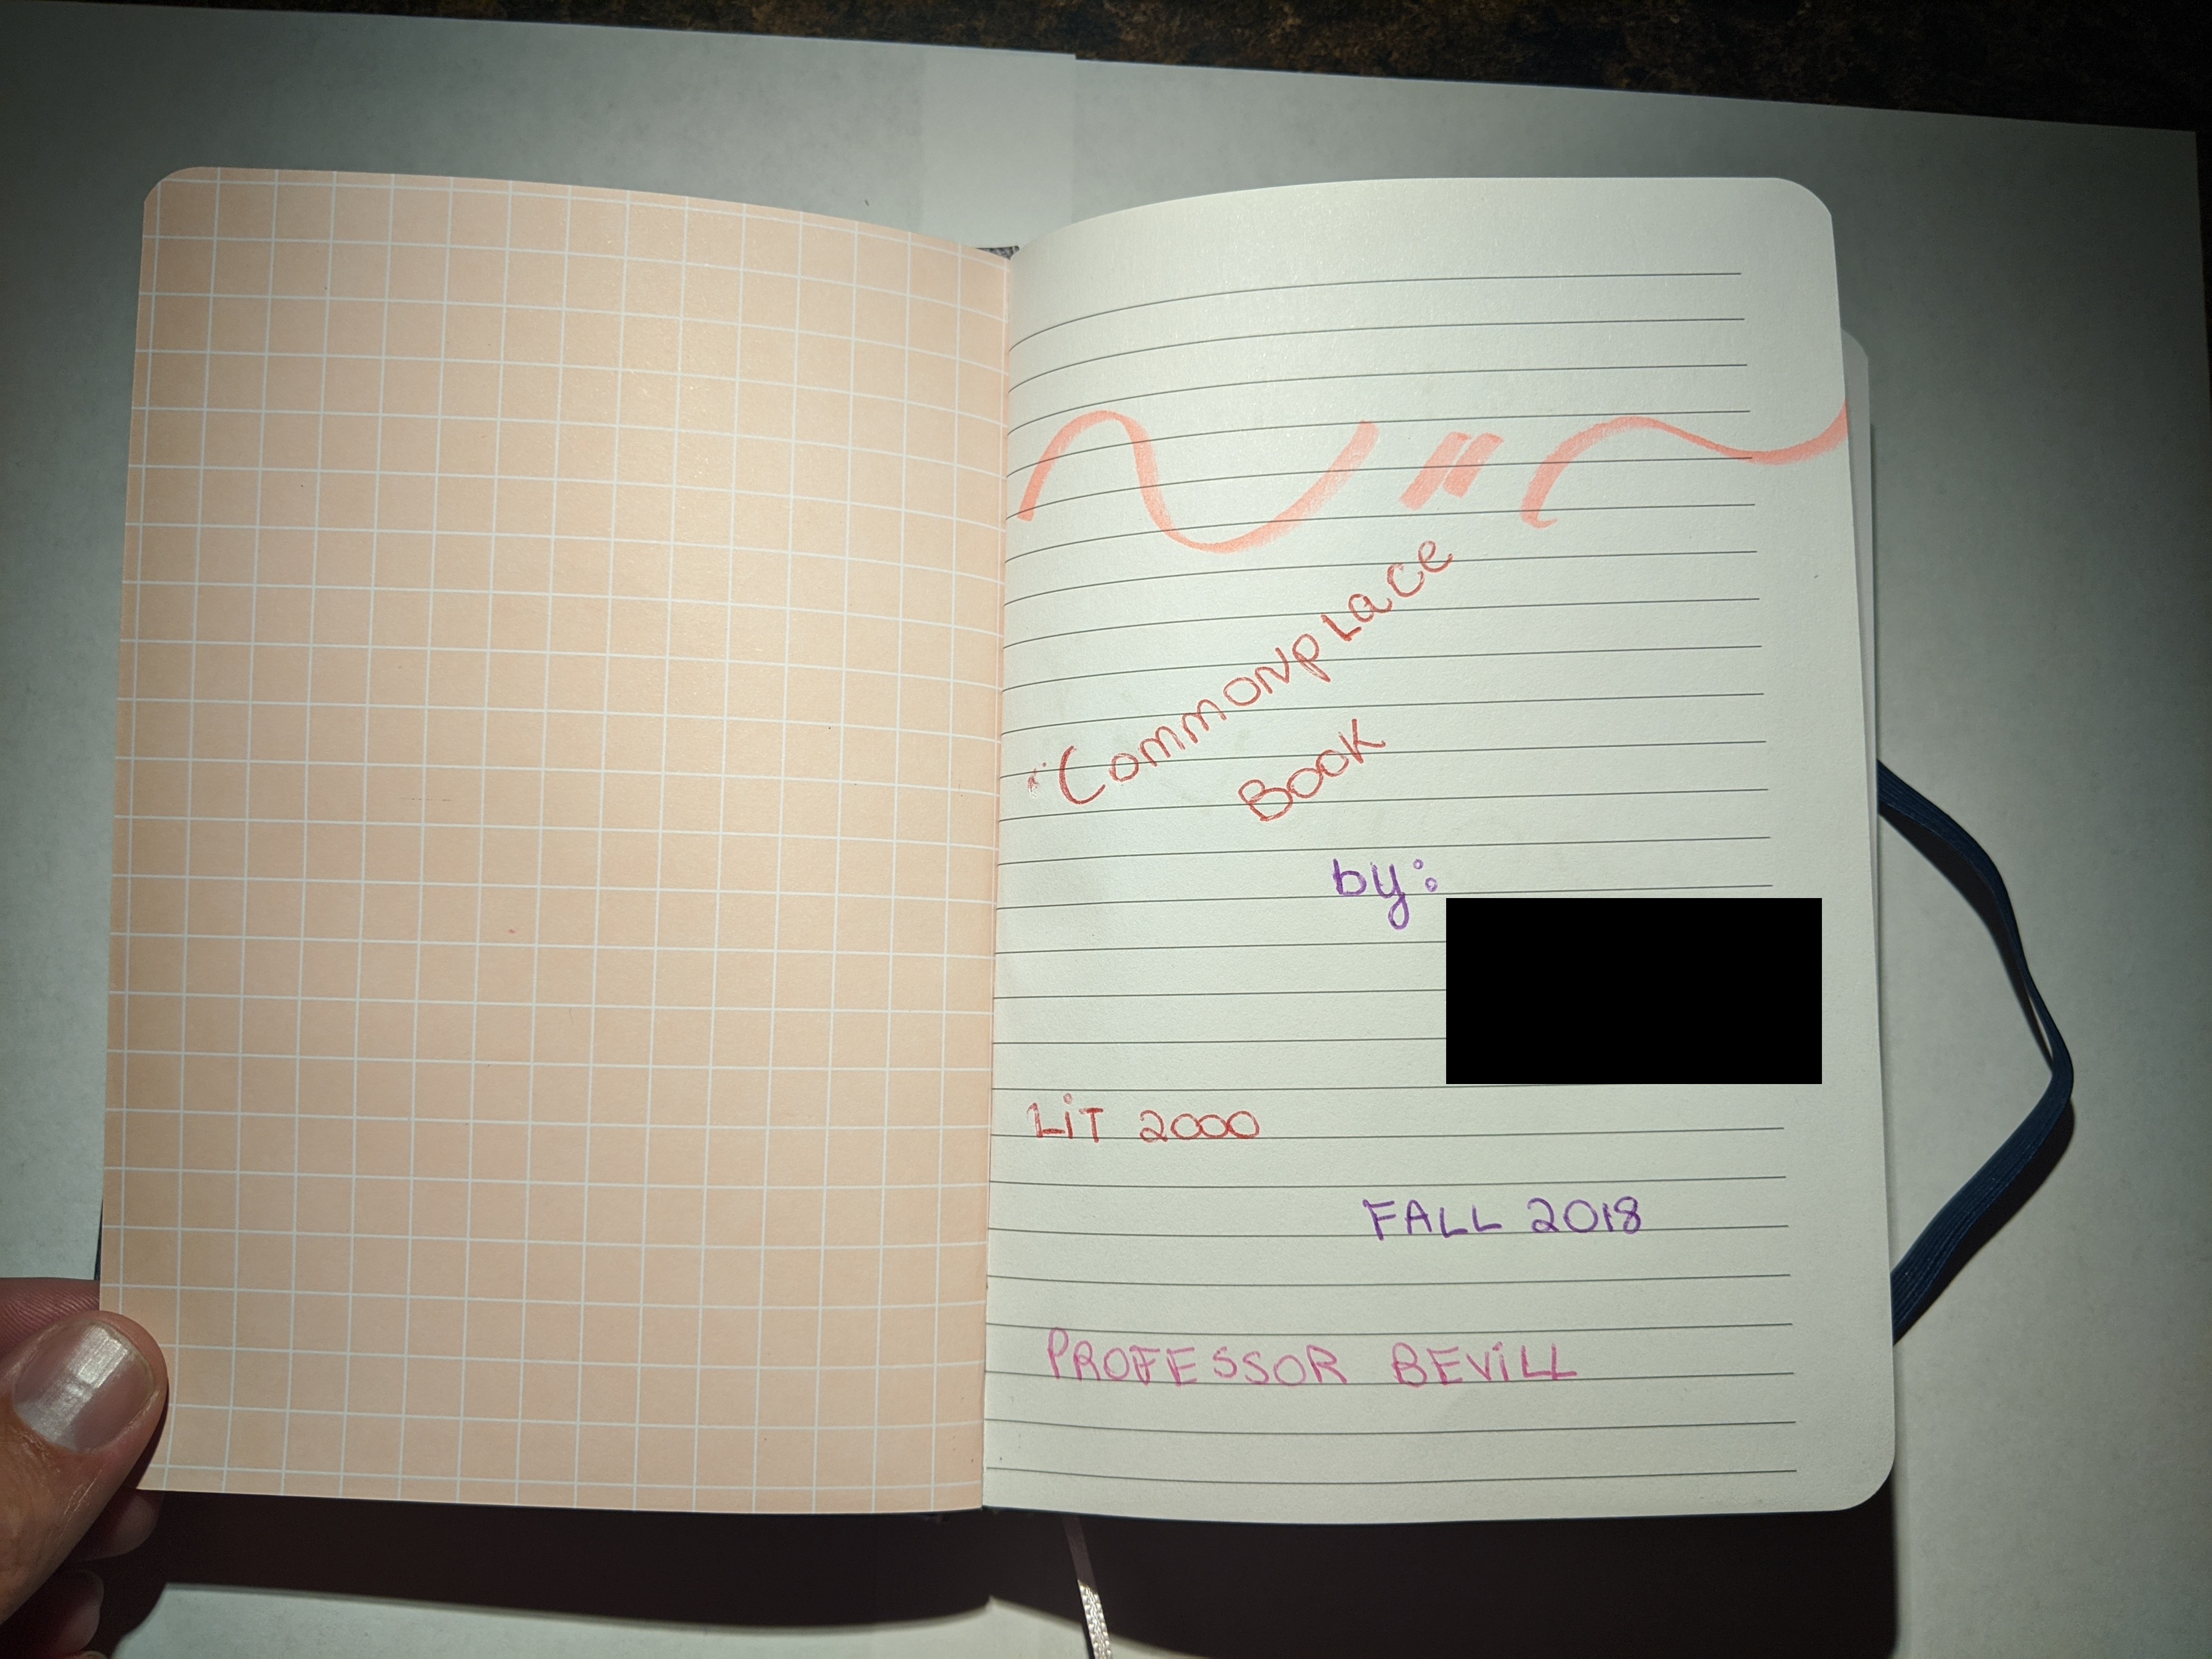 Commonplace
Book
by:
LiT 2000
FALL 2018
PROFESSOR BEVILL